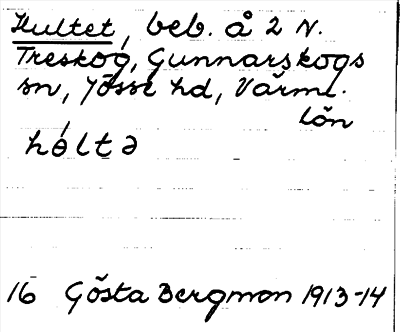 Hultet, beb. å 2 N.
Treskog, Gunnarskogs
sn, Jösse hd, Värml.
lön
hólt
16 Gösta Bergman 1913-14